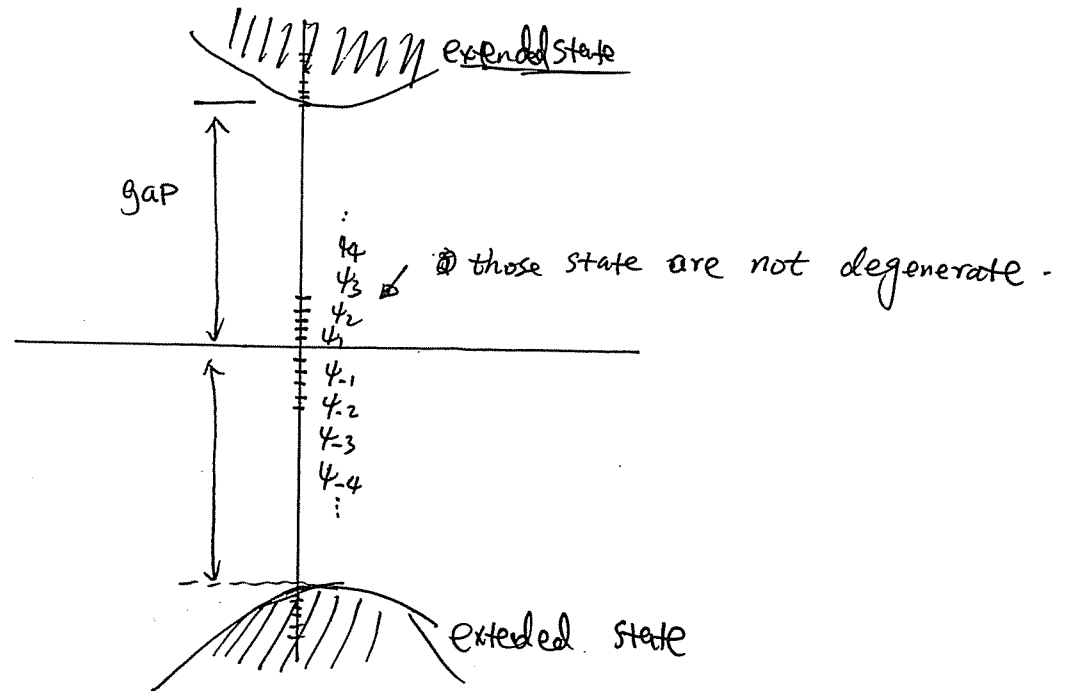 extended state
gap
⋮
ψ4
ψ3
ψ2
ψ1
those state are not degenerate.
ψ-1
ψ-2
ψ-3
ψ-4
⋮
exteded state